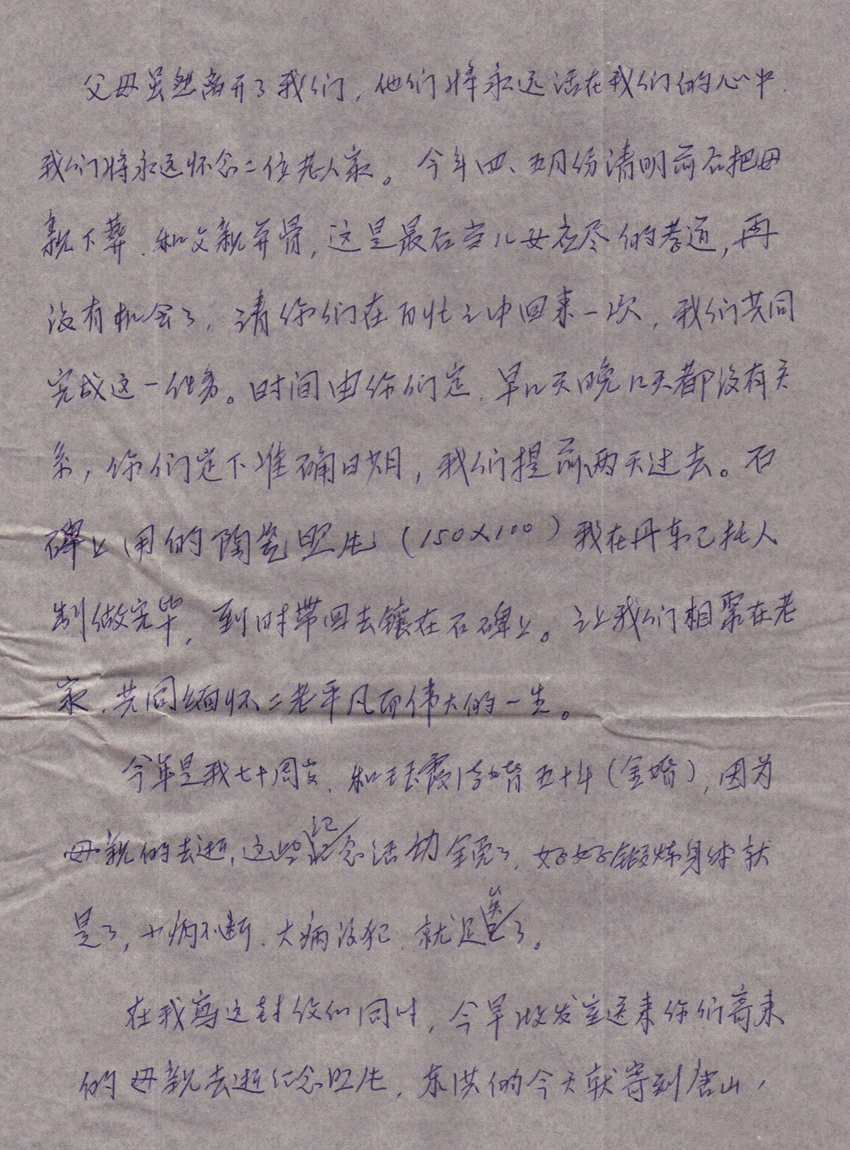 父母虽然离开了我们,他们将永远活在我们的心中.
我们将永远怀念二位老人家。今年四、五月份清明前后把母
亲下葬.和父亲并骨,这是最后当儿女应尽的孝道,再
没有机会了,请你们在百忙之中回来一次,我们共同
完成这一任务。时间由你们定,早几天晚几天都没有关
系,你们定下准确日期,我们提前两天过去。石
碑上用的陶瓷照片(150×100)我在丹东已托人
制做完毕,到时带回去镶在石碑上。让我们相聚在老
家.共同缅怀二老平凡而伟大的一生。
今年是我七十周岁.和玉霞结婚五十年(金婚),因为
母亲的去逝,这些记念活动全免了,好好锻炼身体就
是了,小病不断.大病没犯.就足矣了。
在我写这封信的同时,今早收发室送来你们寄来
的母亲去逝纪念照片,东洪的今天就寄到唐山,